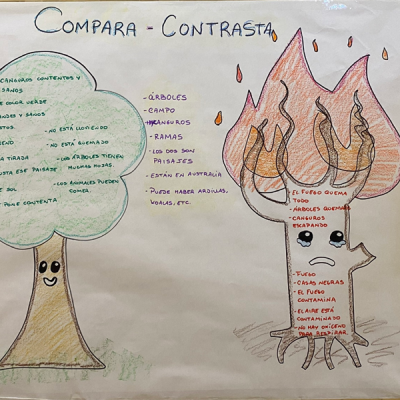 COMPARA - CONTRASTA
CANGUROS CONTENTOS Y
SANOS
COLOR VERDE
Y SANOS
- NO ESTÁ LLOVIENDO
- NO ESTÁ QUEMADO
TIRADA
- LOS ÁRBOLES TIENEN
MUCHAS HOJAS.
ESE PAISAJE
SOL
- LOS ANIMALES PUEDEN
COMER.
PONE CONTENTA
- ÁRBOLES
- CAMPO
- CANGUROS
- RAMAS
- LOS DOS SON
PAISAJES
- ESTÁN EN AUSTRALIA
- PUEDE HABER ARDILLAS,
KOALAS, ETC.
- EL FUEGO QUEMA
TODO
- ÁRBOLES QUEMADOS
- CANGUROS
ESCAPANDO
- FUEGO
- CASAS NEGRAS
- EL FUEGO
CONTAMINA
- EL AIRE ESTÁ
CONTAMINADO
- NO HAY OXÍGENO
PARA RESPIRAR